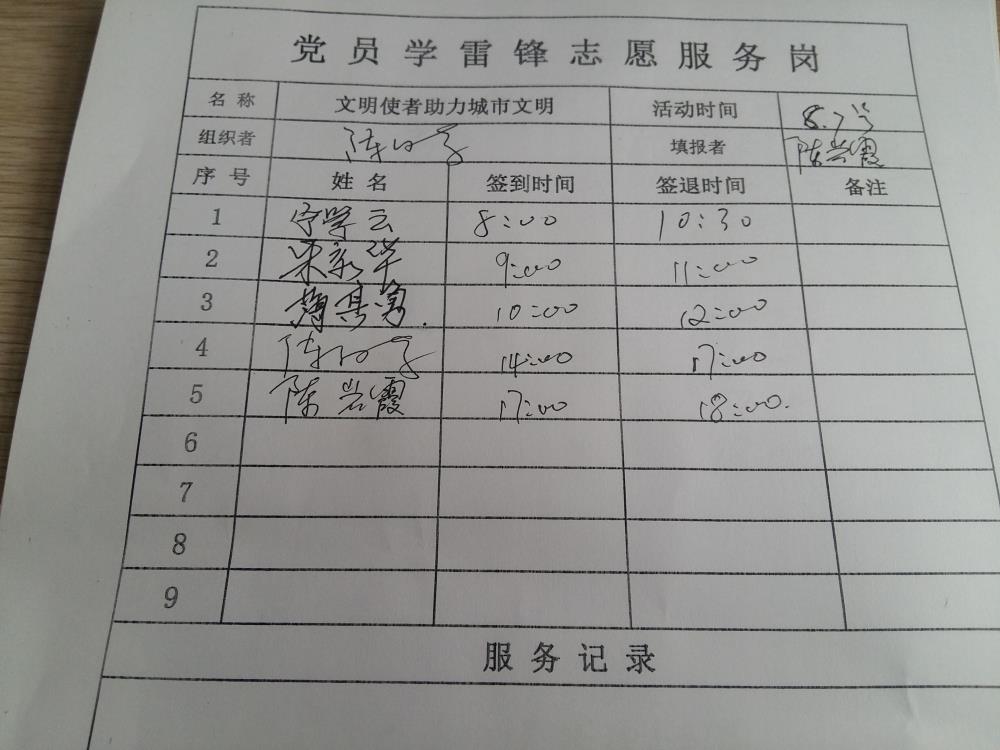 党员学雷锋志愿服务岗
名称 文明使者助力城市文明 活动时间 8.7号
组织者 填报者 陈岩霞
序号 姓名 签到时间 签退时间 备注
1 8:00 10:30
2 9:00 11:00
3 10:00 12:00
4 14:00 17:00
5 陈岩霞 17:00 18:00.
6
7
8
9
服务记录